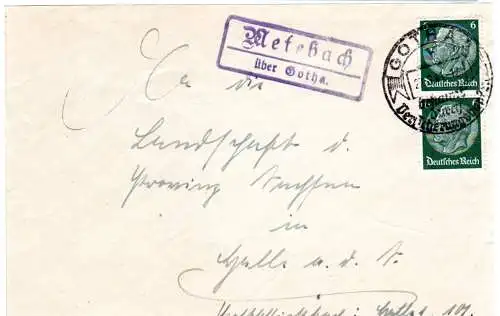 Metebach
über Gotha.
6
GOTHA
Deutsches Reich
6
Deutsches Reich
An die
Landschaft d.
Provinz Sachsen
in
Halle a. d. S.